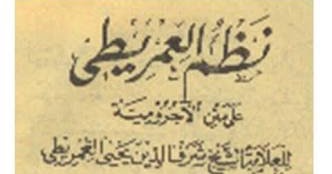 نَظْمُ العِمْرِيطِي
عَلَى مَتْنِ الْآجُرُّومِيَّة
لِلعَلَّامَةِ الشَّيْخِ شَرَفِ الدِّينِ يَحْيَى الْعِمْرِيطِي